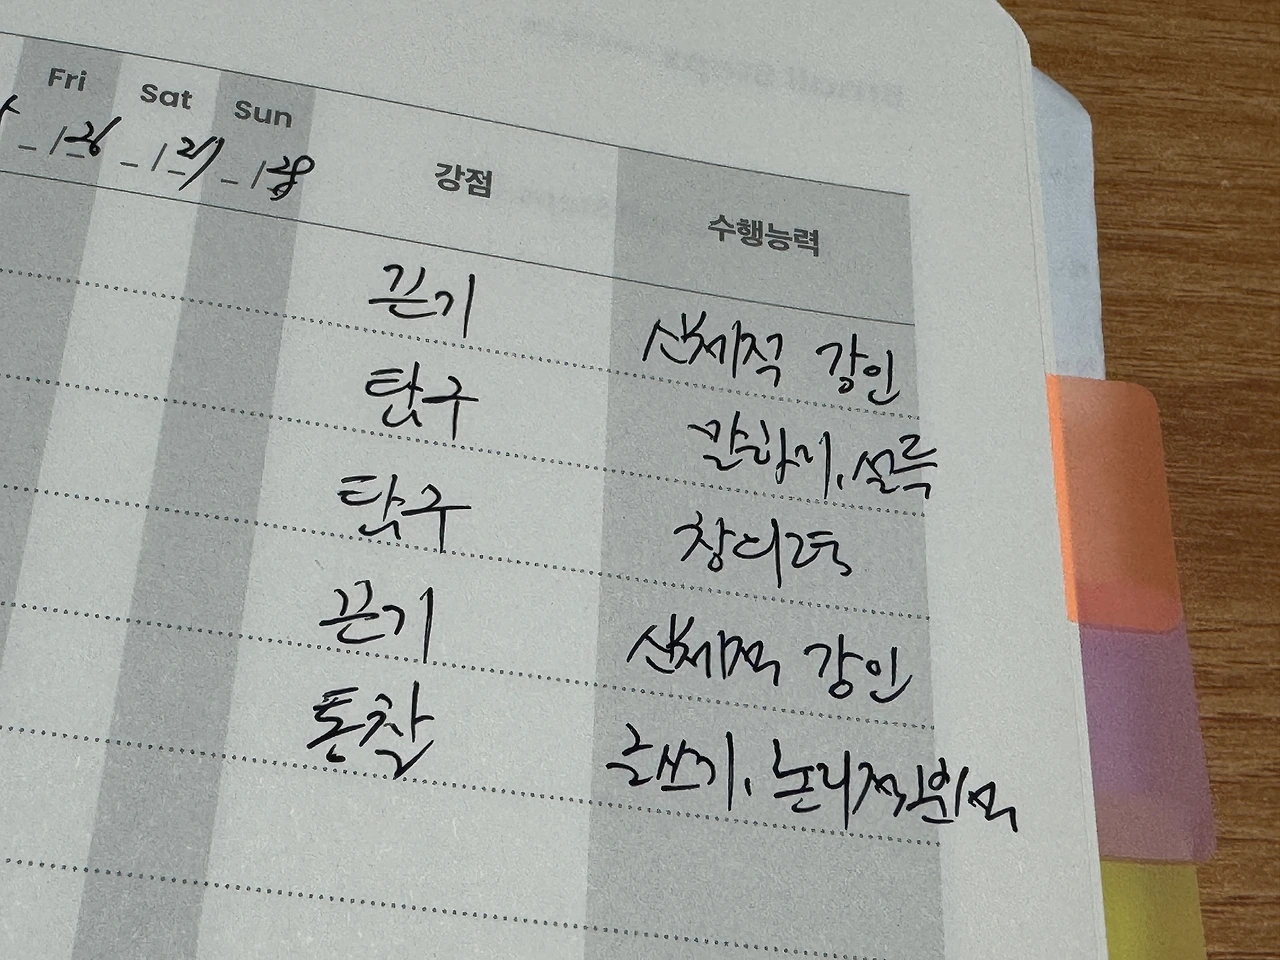 Fri Sat Sun 강점 수행능력
_ / 26 _ / 27 _ / 28
끈기 신체적 강인
탐구 말하기, 설득
탐구 창의력
끈기 신체적 강인
통찰 글쓰기, 논리적분석